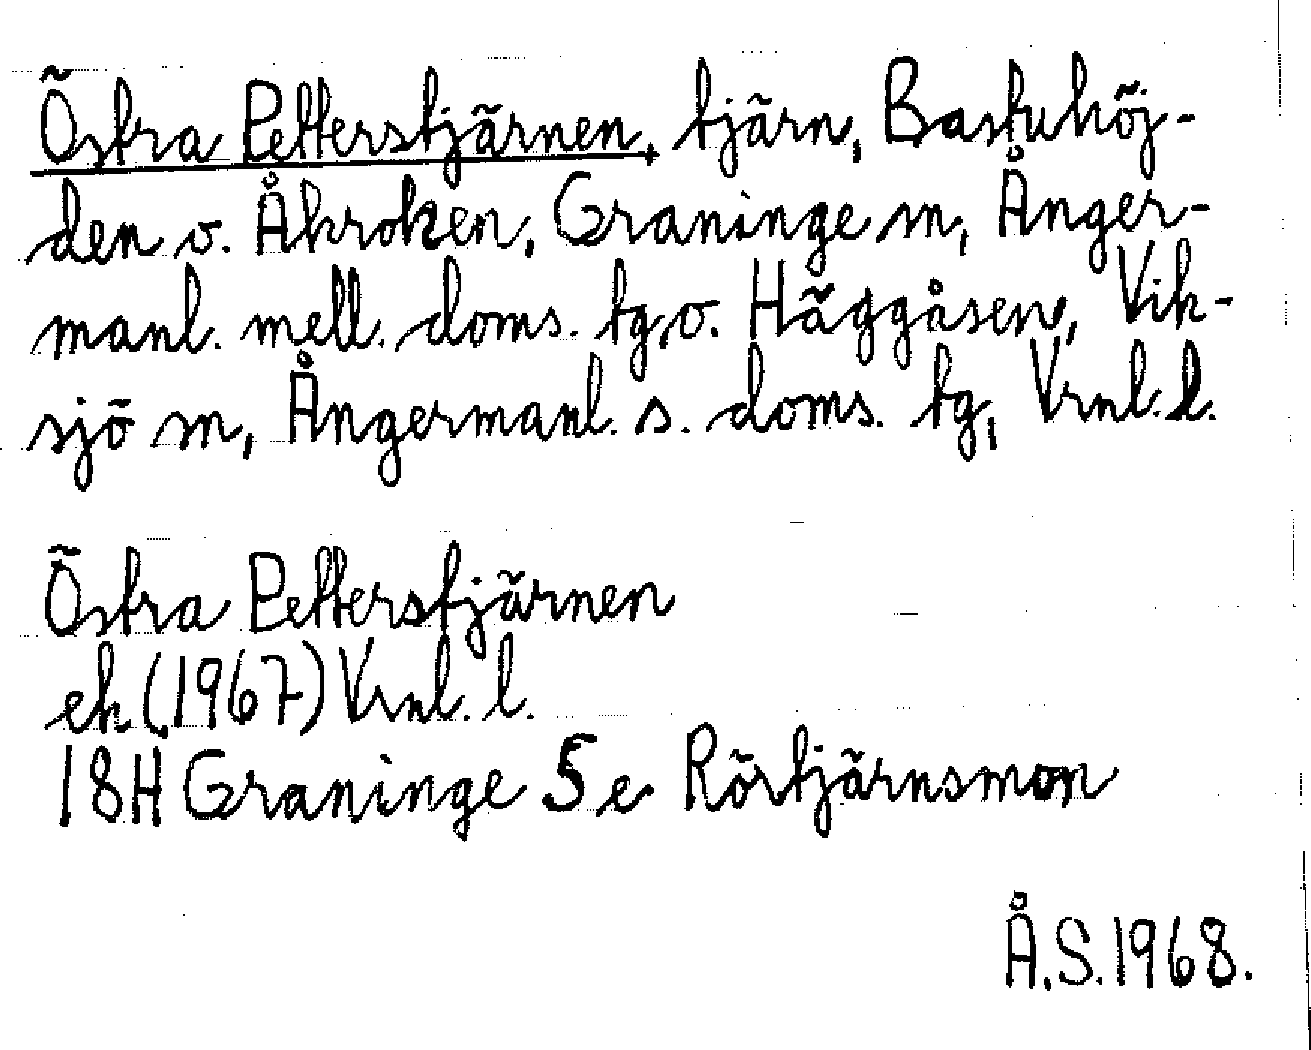 Östra Petterstjärnen, tjärn, Bastuhöj-
den o. Åkroken, Graninge sn, Ånger-
manl. mell. doms. tg, o. Häggåsen, Vik-
sjö sn, Ångermanl. s. doms. tg, Vrnl. l.
Östra Petterstjärnen
ek (1967) Vrnl. l.
18H Graninge 5e Rörtjärnsmon
Å.S. 1968.